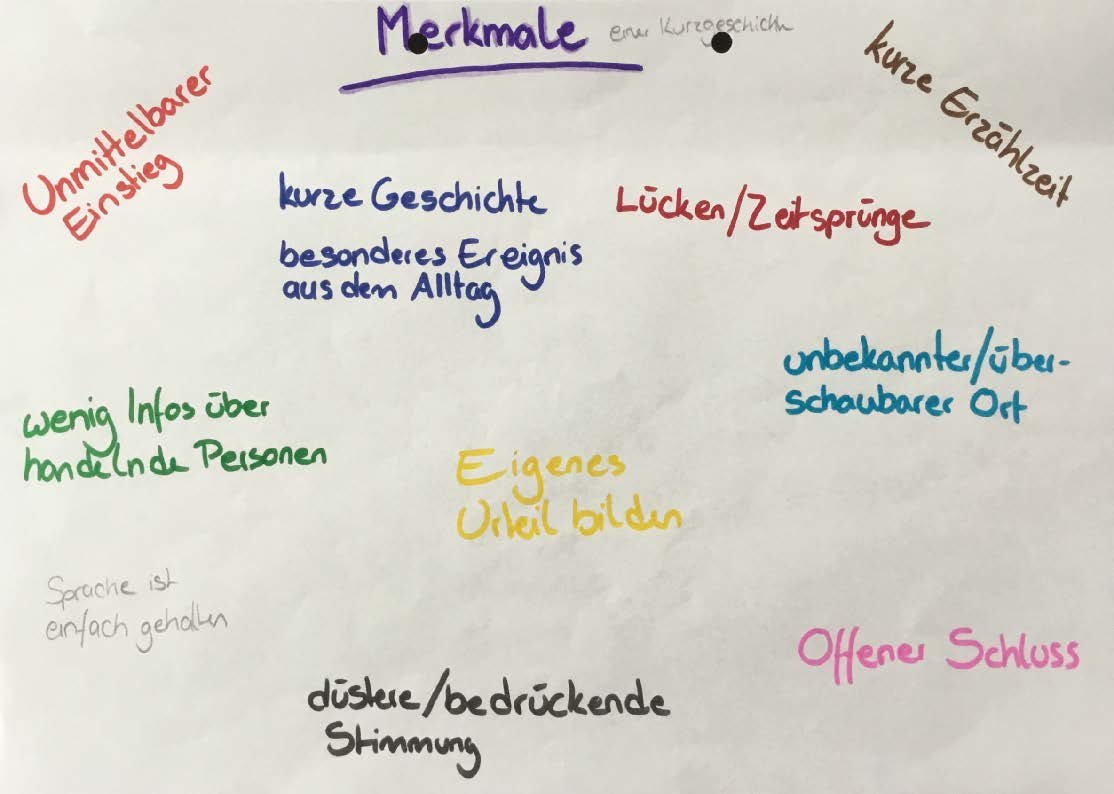 Merkmale einer Kurzgeschichte
Unmittelbarer
Einstieg
kurze Erzählzeit
kurze Geschichte
besonderes Ereignis
aus dem Alltag
Lücken/Zeitsprünge
unbekannter/über-
schaubarer Ort
wenig Infos über
handelnde Personen
Eigenes
Urteil bilden
Sprache ist
einfach gehalten
Offener Schluss
düstere/bedrückende
Stimmung